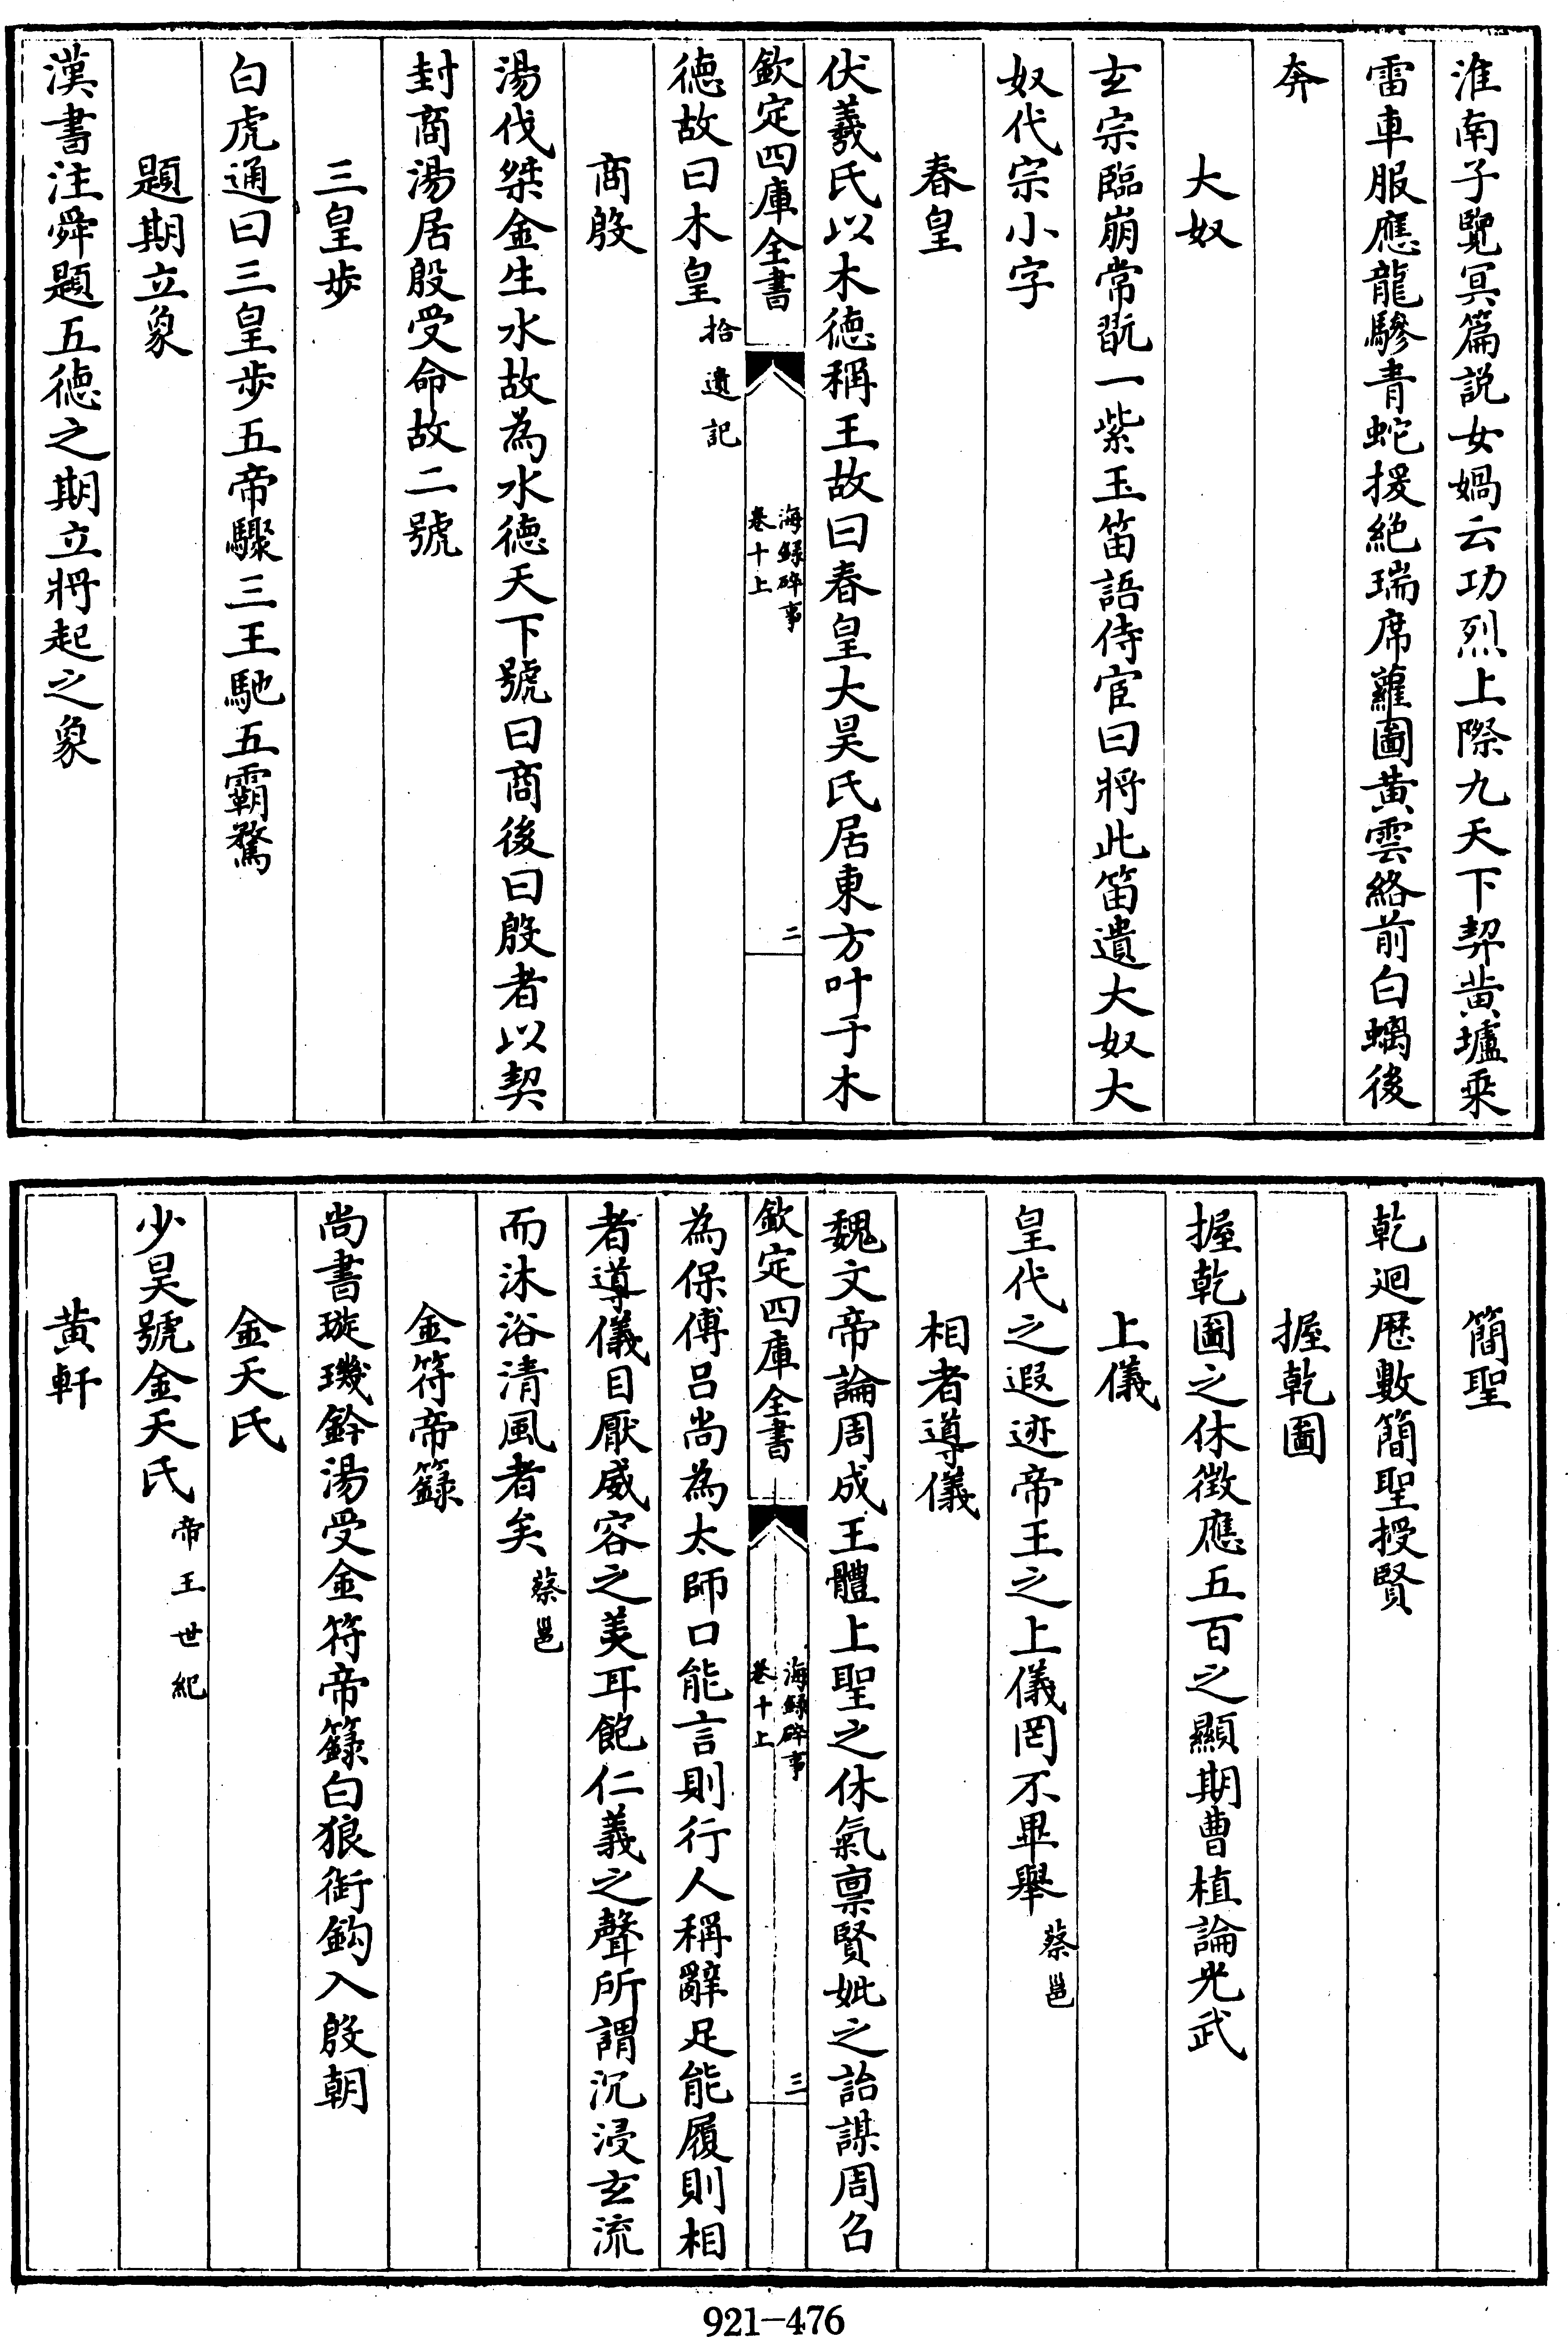 淮南子覽㝠篇説女媧云功烈上際九天下契黄壚乗
雷車服應龍驂青蛇援絶瑞席蘿圖黄雲絡前白螭後
奔
大奴
玄宗臨崩常翫一紫玉笛語侍宦曰將此笛遺大奴大
奴代宗小字
春皇
伏羲氏以木徳稱王故曰春皇大昊氏居東方叶于木
欽定四庫全書
海録碎事
卷十上
二
徳故曰木皇拾遺記
商殷
湯伐桀金生水故為水徳天下號曰商後曰殷者以契
封商湯居殷受命故二號
三皇歩
白虎通曰三皇歩五帝驟三王馳五霸騖
題期立象
漢書注舜題五徳之期立將起之象
簡聖
乾迴厯數簡聖授賢
握乾圖
握乾圖之休徴應五百之顯期曹植論光武
上儀
皇代之遐迹帝王之上儀罔不畢舉蔡邕
相者導儀
魏文帝論周成王體上聖之休氣禀賢妣之詒謀周召
欽定四庫全書
海録碎事
卷十上
三
為保傅吕尚為太師口能言則行人稱辭足能履則相
者導儀目厭威容之美耳飽仁義之聲所謂沉浸玄流
而沐浴清風者矣蔡邕
金符帝籙
尚書璇璣鈐湯受金符帝籙白狼銜鈎入殷朝
金天氏
少昊號金天氏帝王世紀
黄軒
921-476